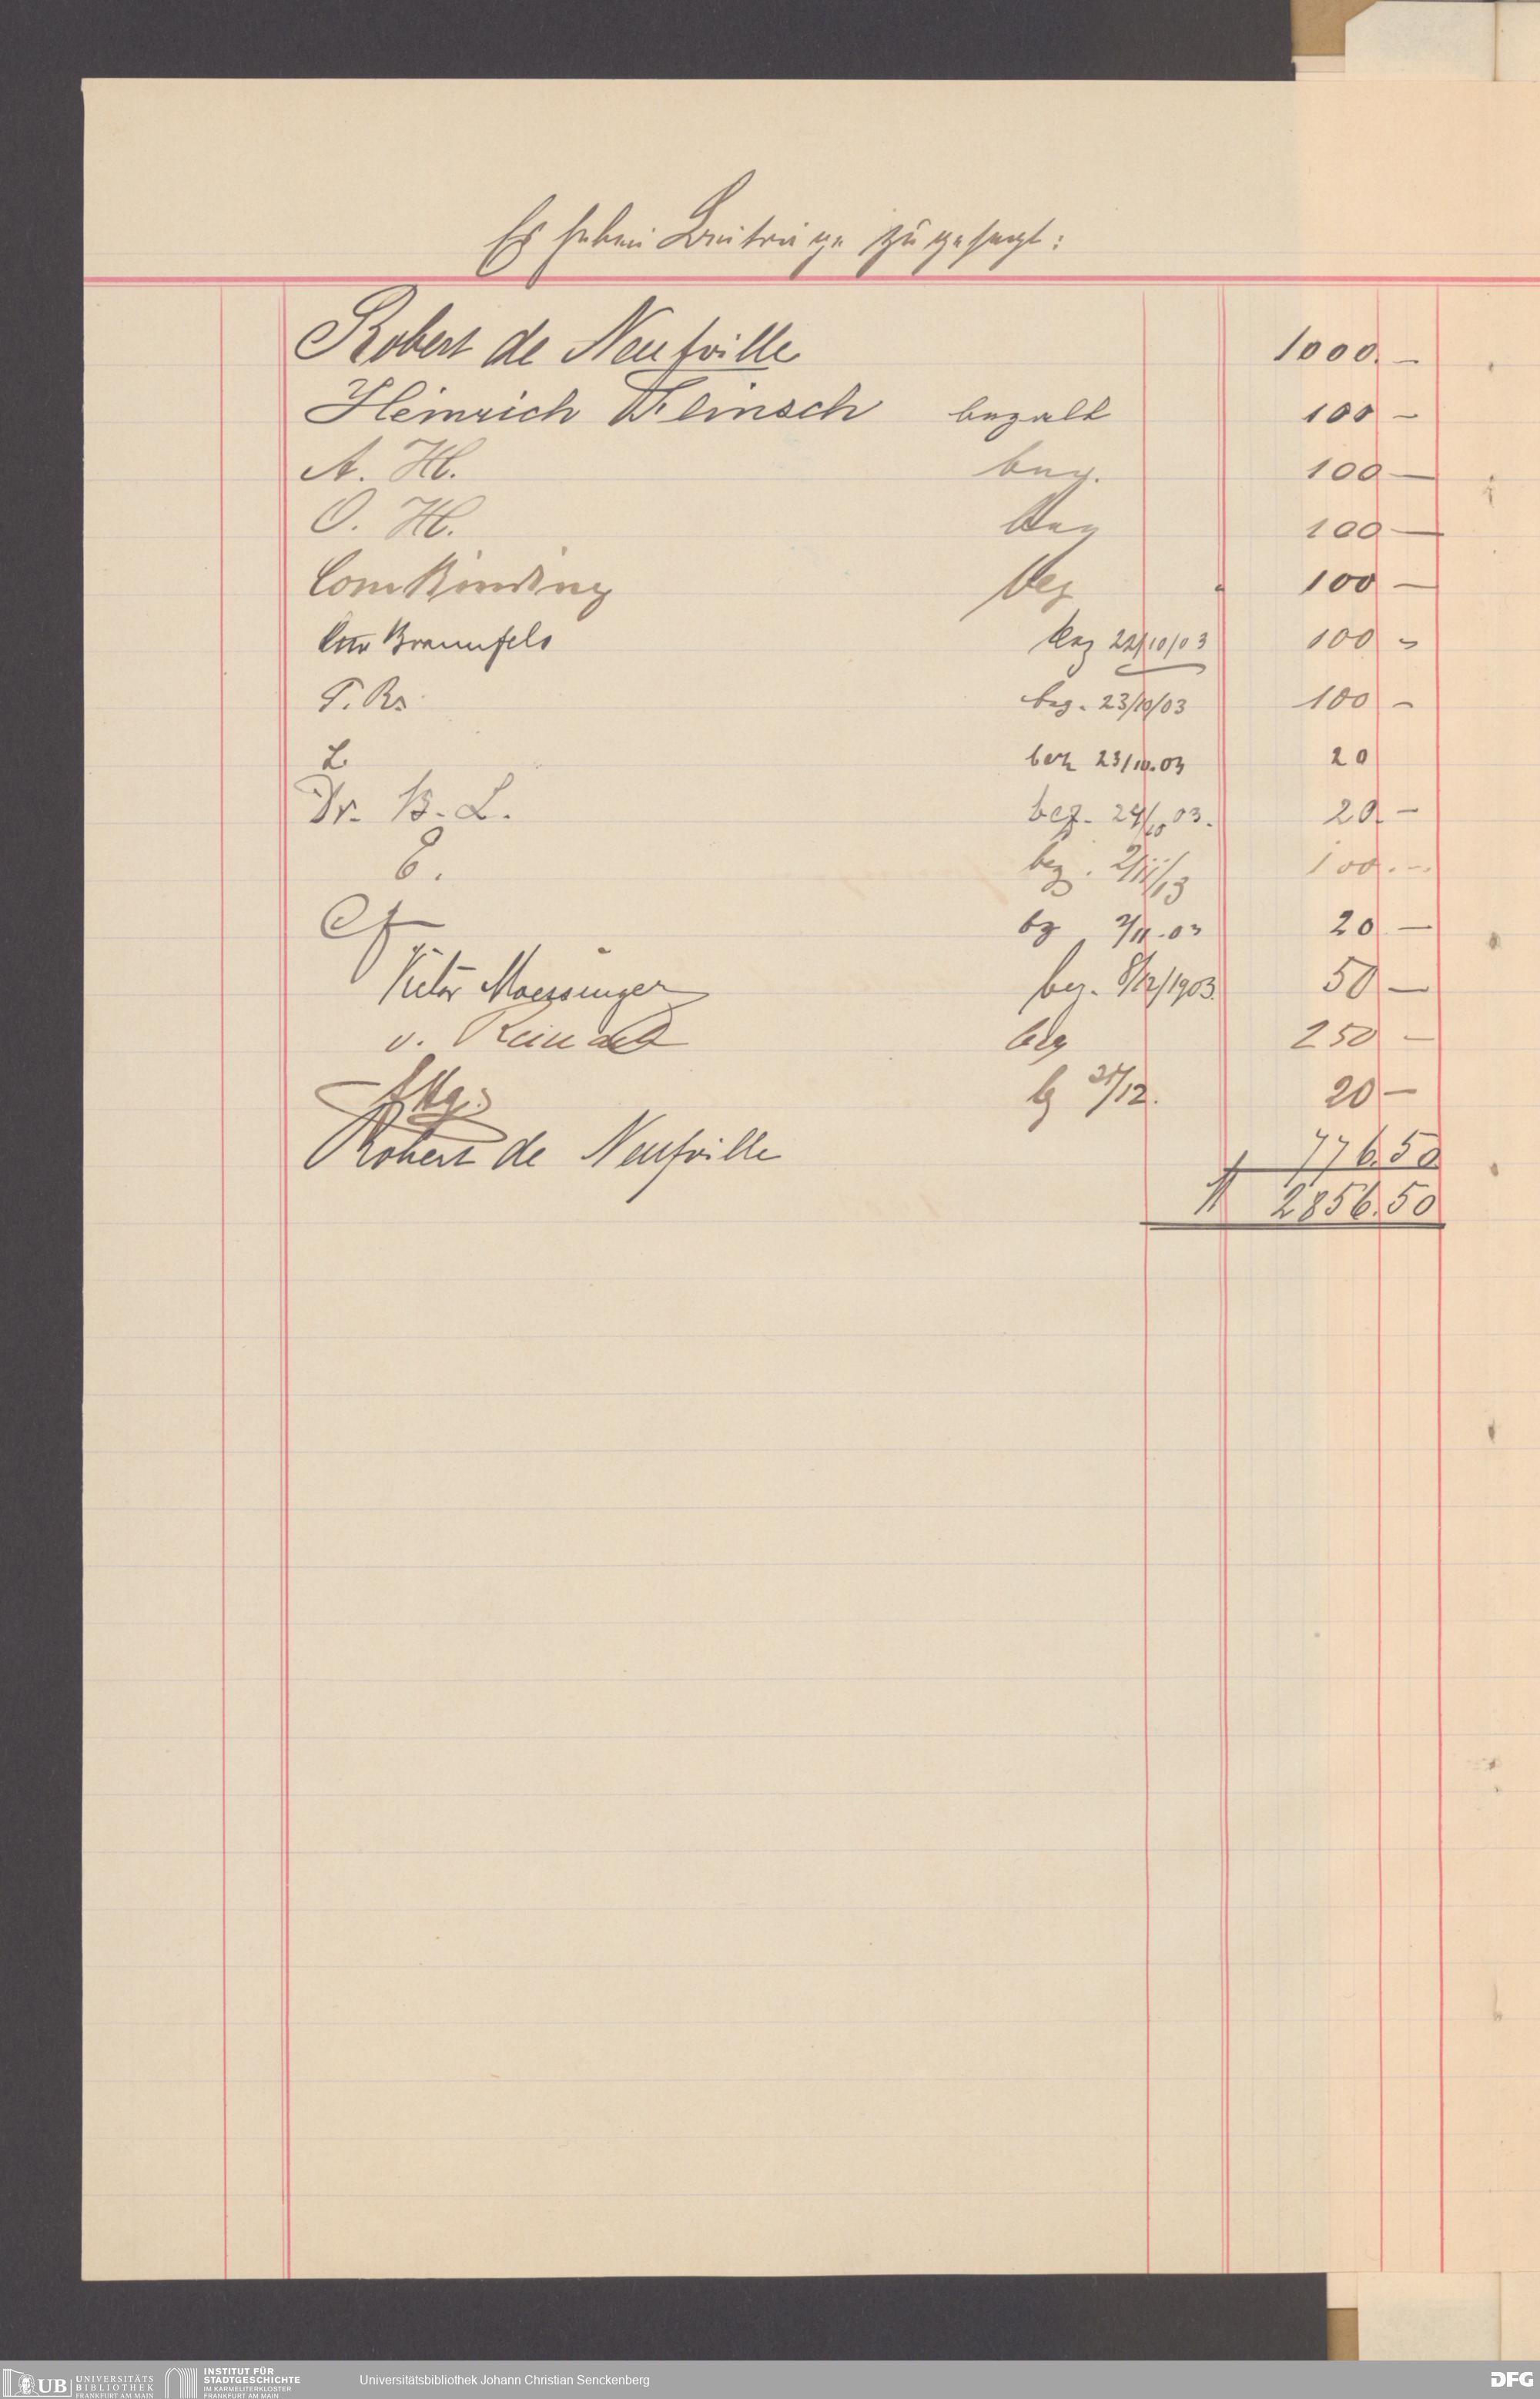 Es haben Beiträge zugesagt:
Robert de Neufville 1000.—
Heinrich Flinsch bezalt 100 —
A. H. bez. 100 —
O. H. bez 100 —
Conr Binding bez 100 —
Otto Braunfels bez 22/10/03 100 —
bez. 23/10/03 100 —
L. bez 23/10.03 20
Dr. B. L. bez. 24/10 03. 20 —
E. bez. 100.—
bz 2/11.03 20 —
Victor Moessinger bez. 8/12/1903 50 —
v. Reinach bez 250 —
20 —
Robert de Neufville 776.50
M 2856.50
UB UNIVERSITÄTS
BIBLIOTHEK
FRANKFURT AM MAIN
INSTITUT FÜR
STADTGESCHICHTE
IM KARMELITERKLOSTER
FRANKFURT AM MAIN
Universitätsbibliothek Johann Christian Senckenberg
DFG